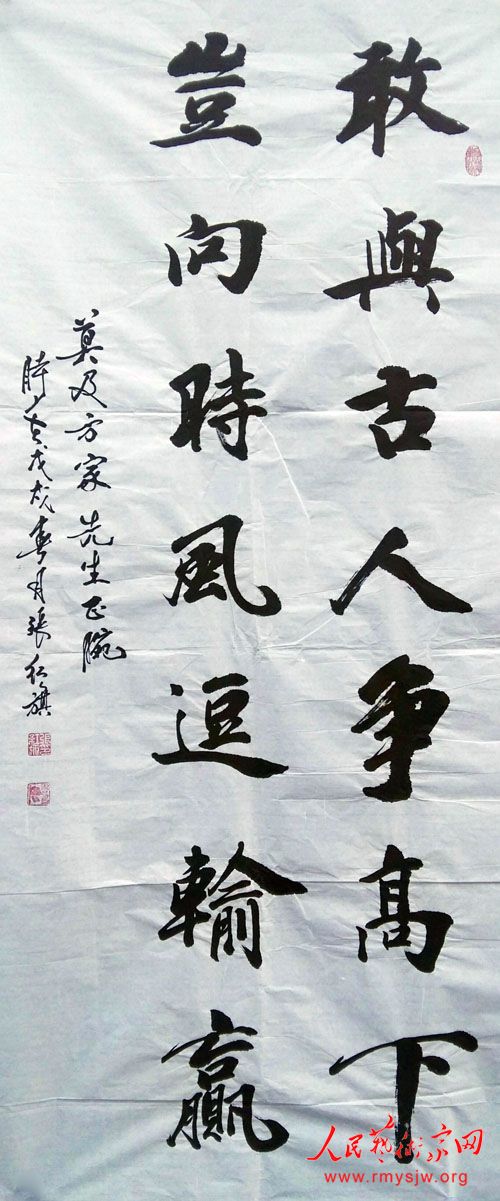 敢與古人争高下
豈向時風逗輸贏
莫及方家先生正腕
時於戊戌春月張紅旗
人民藝術家网
www.rmysjw.org